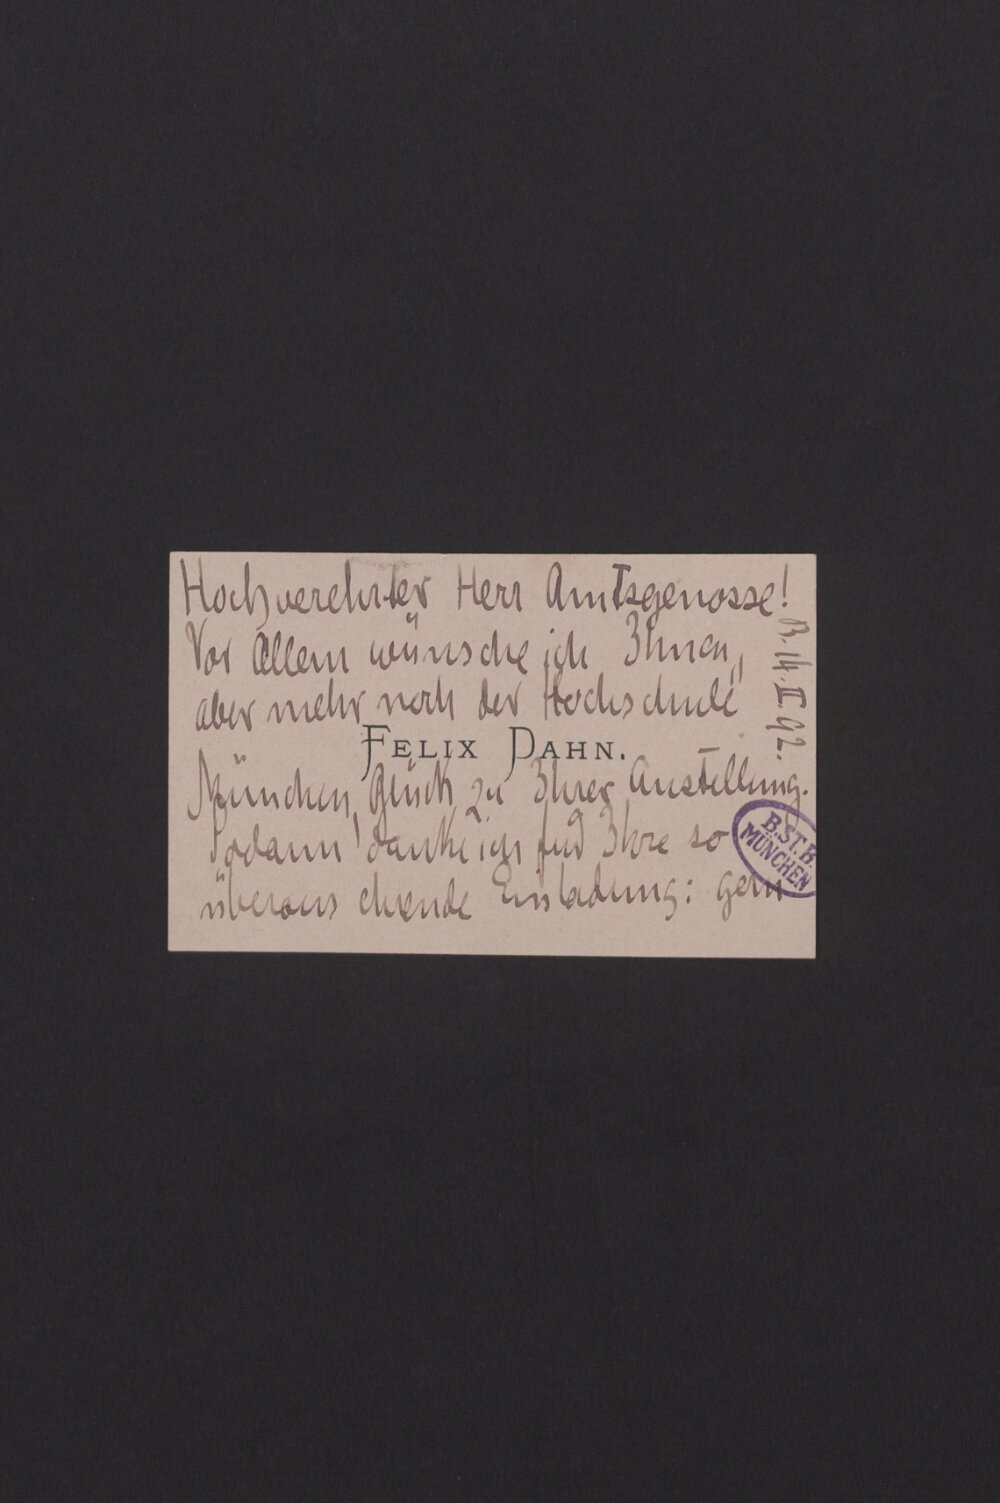 Hochverehrter Herr Amtsgenosse!
Vor Allem wünsche ich Ihnen,
aber mehr noch der Hochschule
FELIX DAHN.
München, Glück zu Ihrer Anstellung.
Sodann danke ich für Ihre so
überaus ehrende Einladung: gern
B. 14. II 92.
B.ST.B.
MÜNCHEN